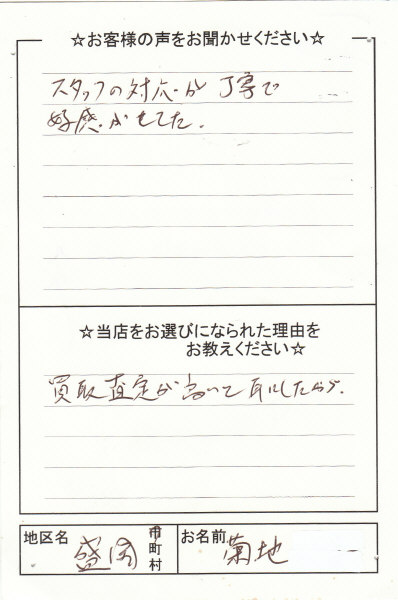 ☆お客様の声をお聞かせください☆
スタッフの対応が丁寧で
好感がもてた。
☆当店をお選びになられた理由を
お教えください☆
買取査定が高いて耳にしたから。
地区名 盛岡 市町村 お名前 菊地